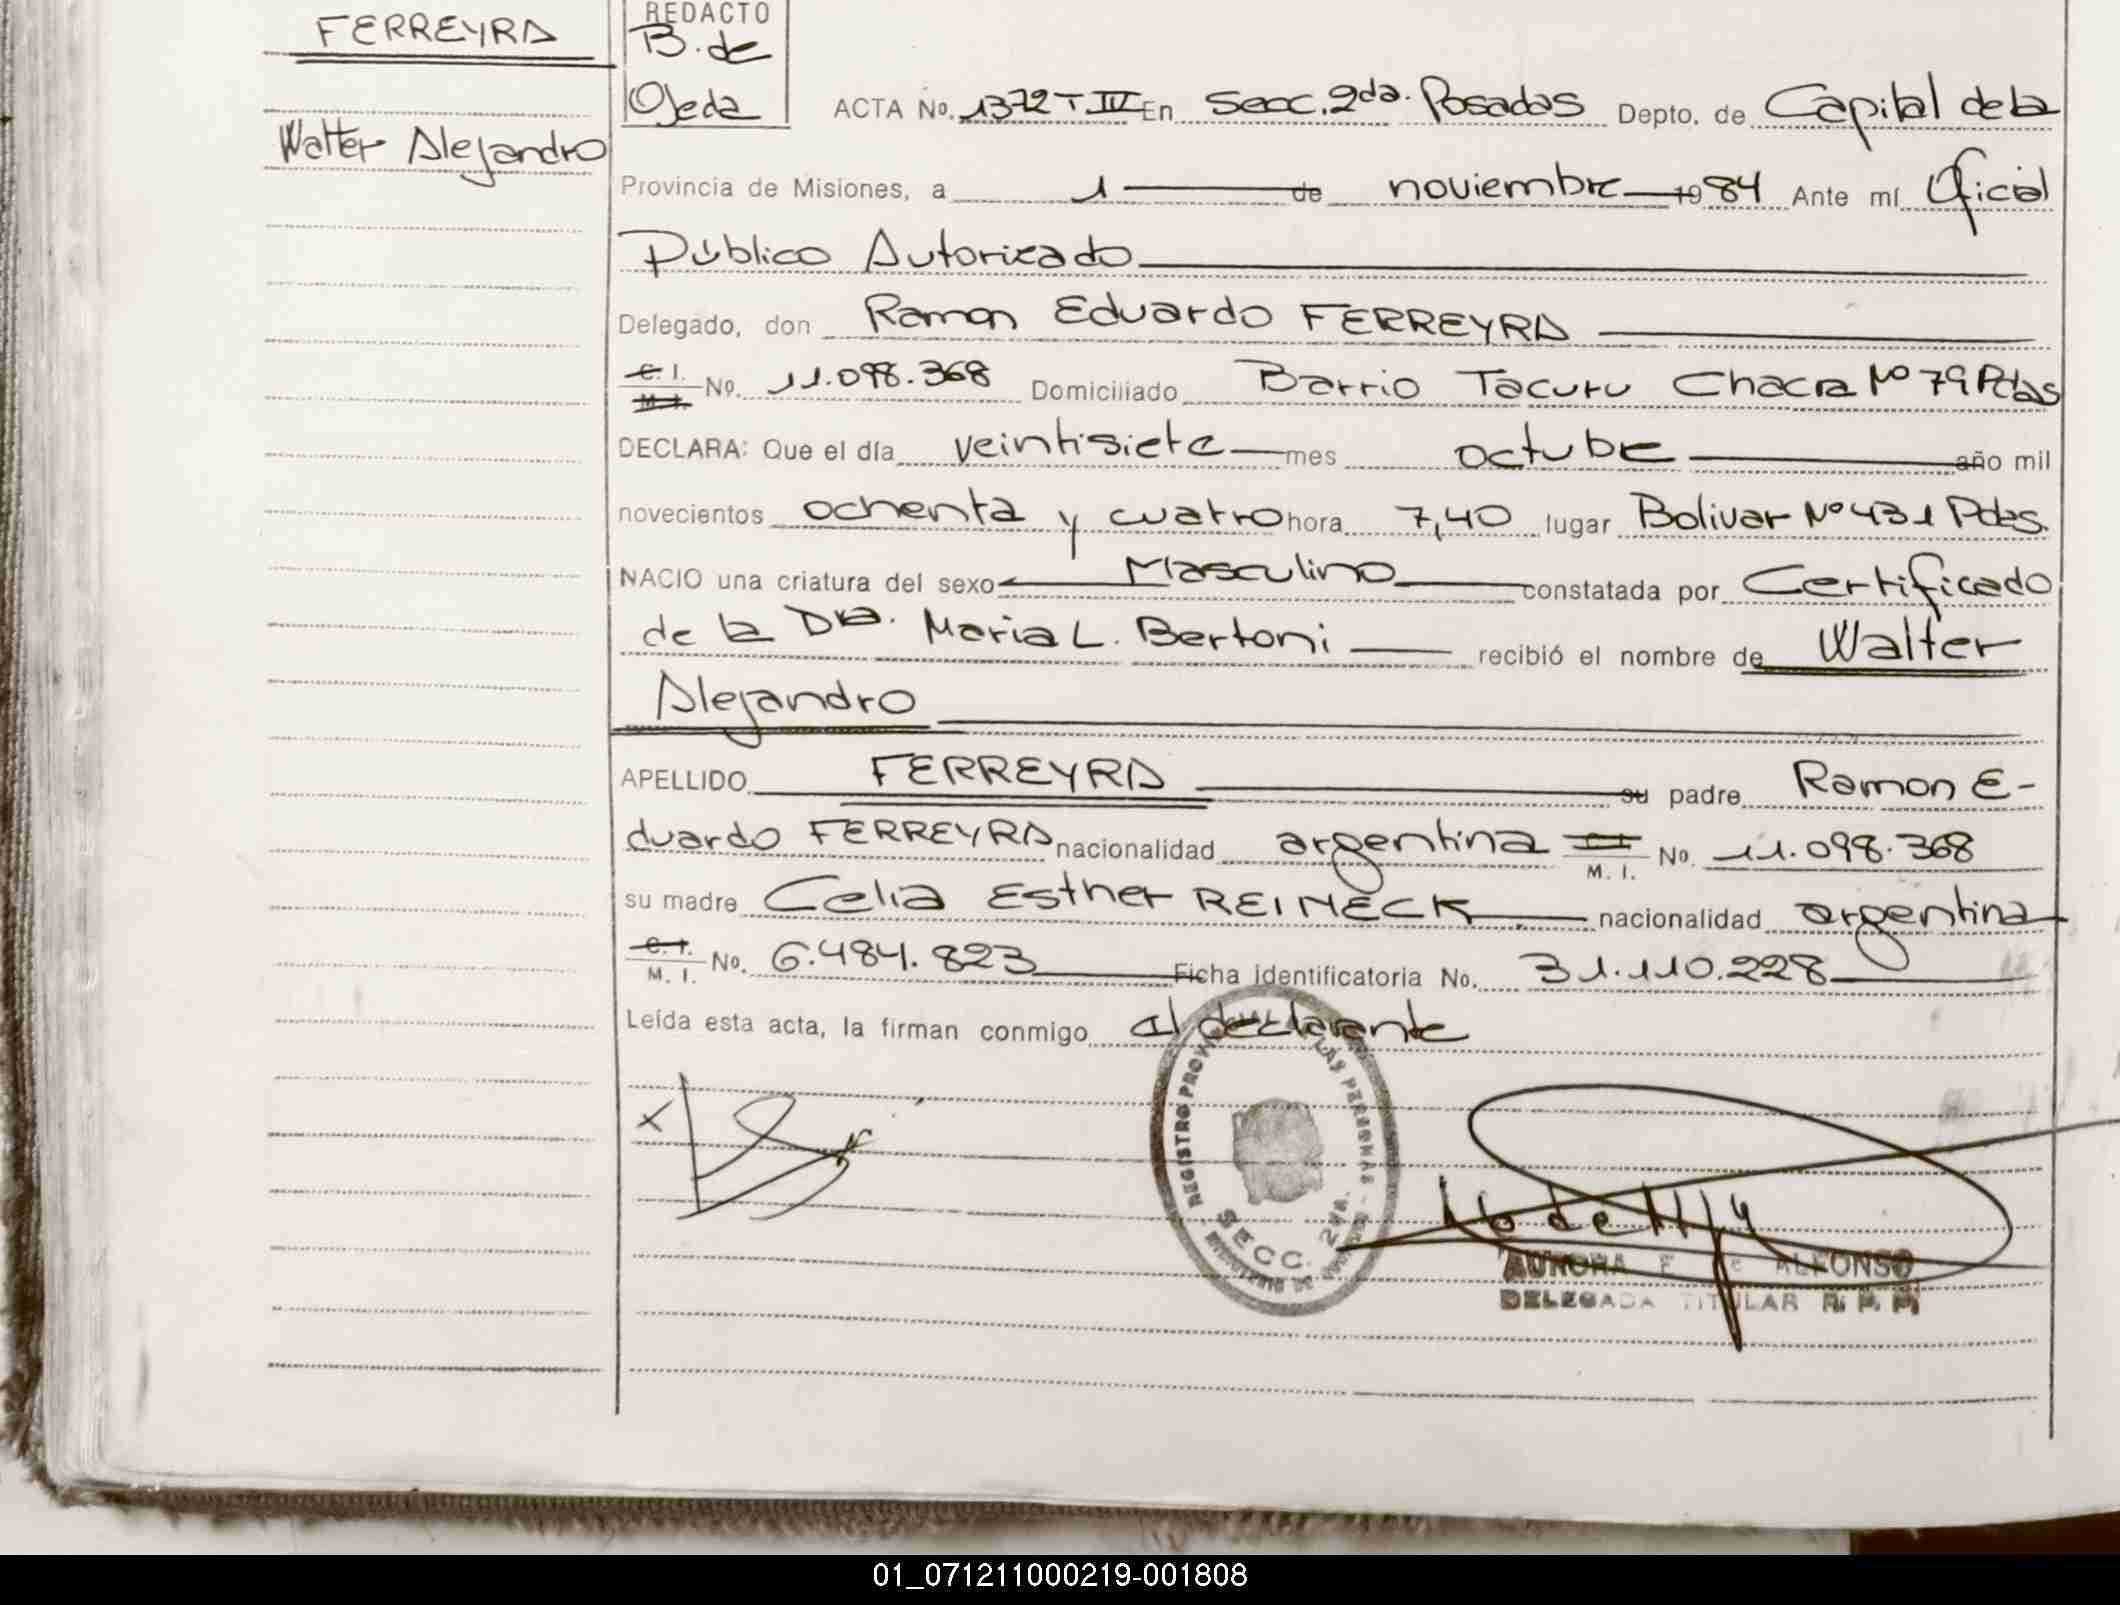 FERREYRA
Walter Alejandro
REDACTO
B. de
Ojeda
ACTA No. 1372 T IV En Secc. 2da. Posadas Depto. de Capital de la
Provincia de Misiones, a 1 de noviembre 1984 Ante mí Oficial
Público Autorizado
Delegado, don Ramon Eduardo FERREYRA
C. I. M. I. No. 11.098.368 Domiciliado Barrio Tacuru Chacra Nº 79 Pdas
DECLARA: Que el día veintisiete mes octubre año mil
novecientos ochenta y cuatro hora 7,40 lugar Bolivar Nº 431 Pdas.
NACIO una criatura del sexo Masculino constatada por Certificado
de la Dra. Maria L. Bertoni recibió el nombre de Walter
Alejandro
APELLIDO FERREYRA su padre Ramon E-
duardo FERREYRA nacionalidad argentina C. I. M. I. No. 11.098.368
su madre Celia Esther REINECK nacionalidad argentina
C. I. M. I. No. 6.484.823 Ficha identificatoria No. 31.110.228
Leída esta acta, la firman conmigo el declarante
X
REGISTRO LAS PERSONAS
SECC. 2DA.
AURORA E. ALFONSO
DELEGADA TITULAR R. P. P.
01_071211000219-001808